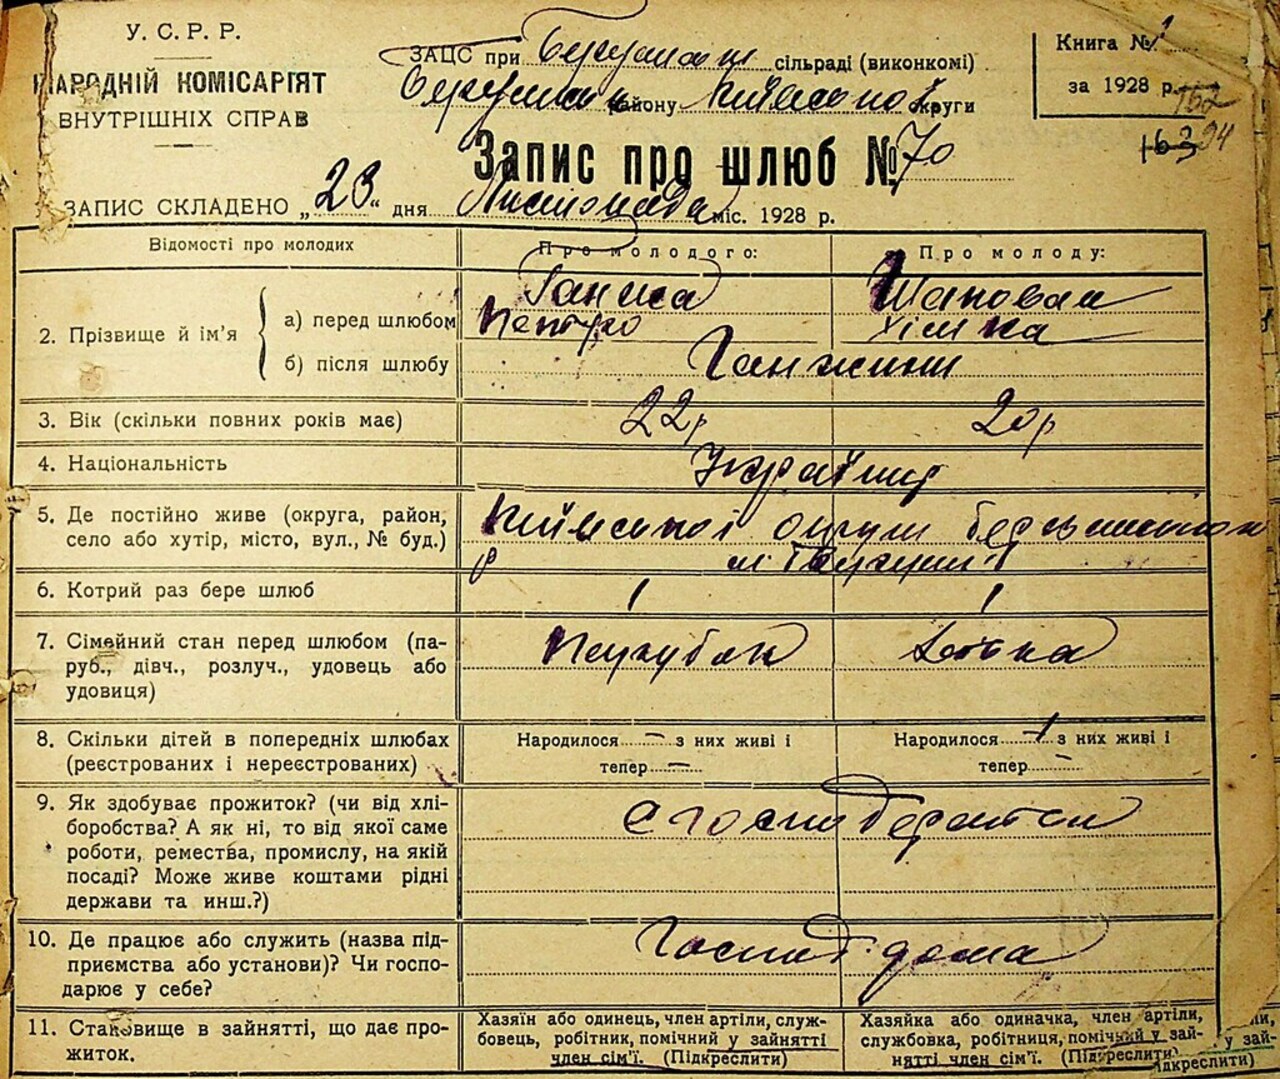 У. С. Р. Р.
НАРОДНІЙ КОМІСАРІЯТ
ВНУТРІШНІХ СПРАВ
ЗАЦС при сільраді (виконкомі)
району округи
Книга № 1
за 1928 р.
162
163 94
Запис про шлюб № 70
ЗАПИС СКЛАДЕНО „23“ дня Листопада міс. 1928 р.
Відомості про молодих
Про молодого:
Про молоду:
2. Прізвище й ім'я
а) перед шлюбом
Ганжа Шаповал
Петро Хімка
б) після шлюбу
Ганжини
3. Вік (скільки повних років має)
22 р 20 р
4. Національність
Україн
5. Де постійно живе (округа, район,
село або хутір, місто, вул., № буд.)
Київської округи
р
6. Котрий раз бере шлюб
1 1
7. Сімейний стан перед шлюбом (па-
руб., дівч., розлуч., удовець або
удовиця)
Парубок Дівка
8. Скільки дітей в попередніх шлюбах
(реєстрованих і нереєстрованих)
Народилося – з них живі і
тепер –
Народилося – з них живі і
тепер –
9. Як здобуває прожиток? (чи від хлі-
боробства? А як ні, то від якої саме
роботи, ремества, промислу, на якій
посаді? Може живе коштами рідні
держави та инш.?)
10. Де працює або служить (назва під-
приємства або установи)? Чи госпо-
дарює у себе?
дома
11. Становище в зайнятті, що дає про-
житок.
Хазяїн або одинець, член артіли, служ-
бовець, робітник, помічний у зайнятті
член сім'ї. (Підкреслити)
Хазяйка або одиначка, член артіли,
службовка, робітниця, помічний у зай-
нятті член сім'ї. (Підкреслити)